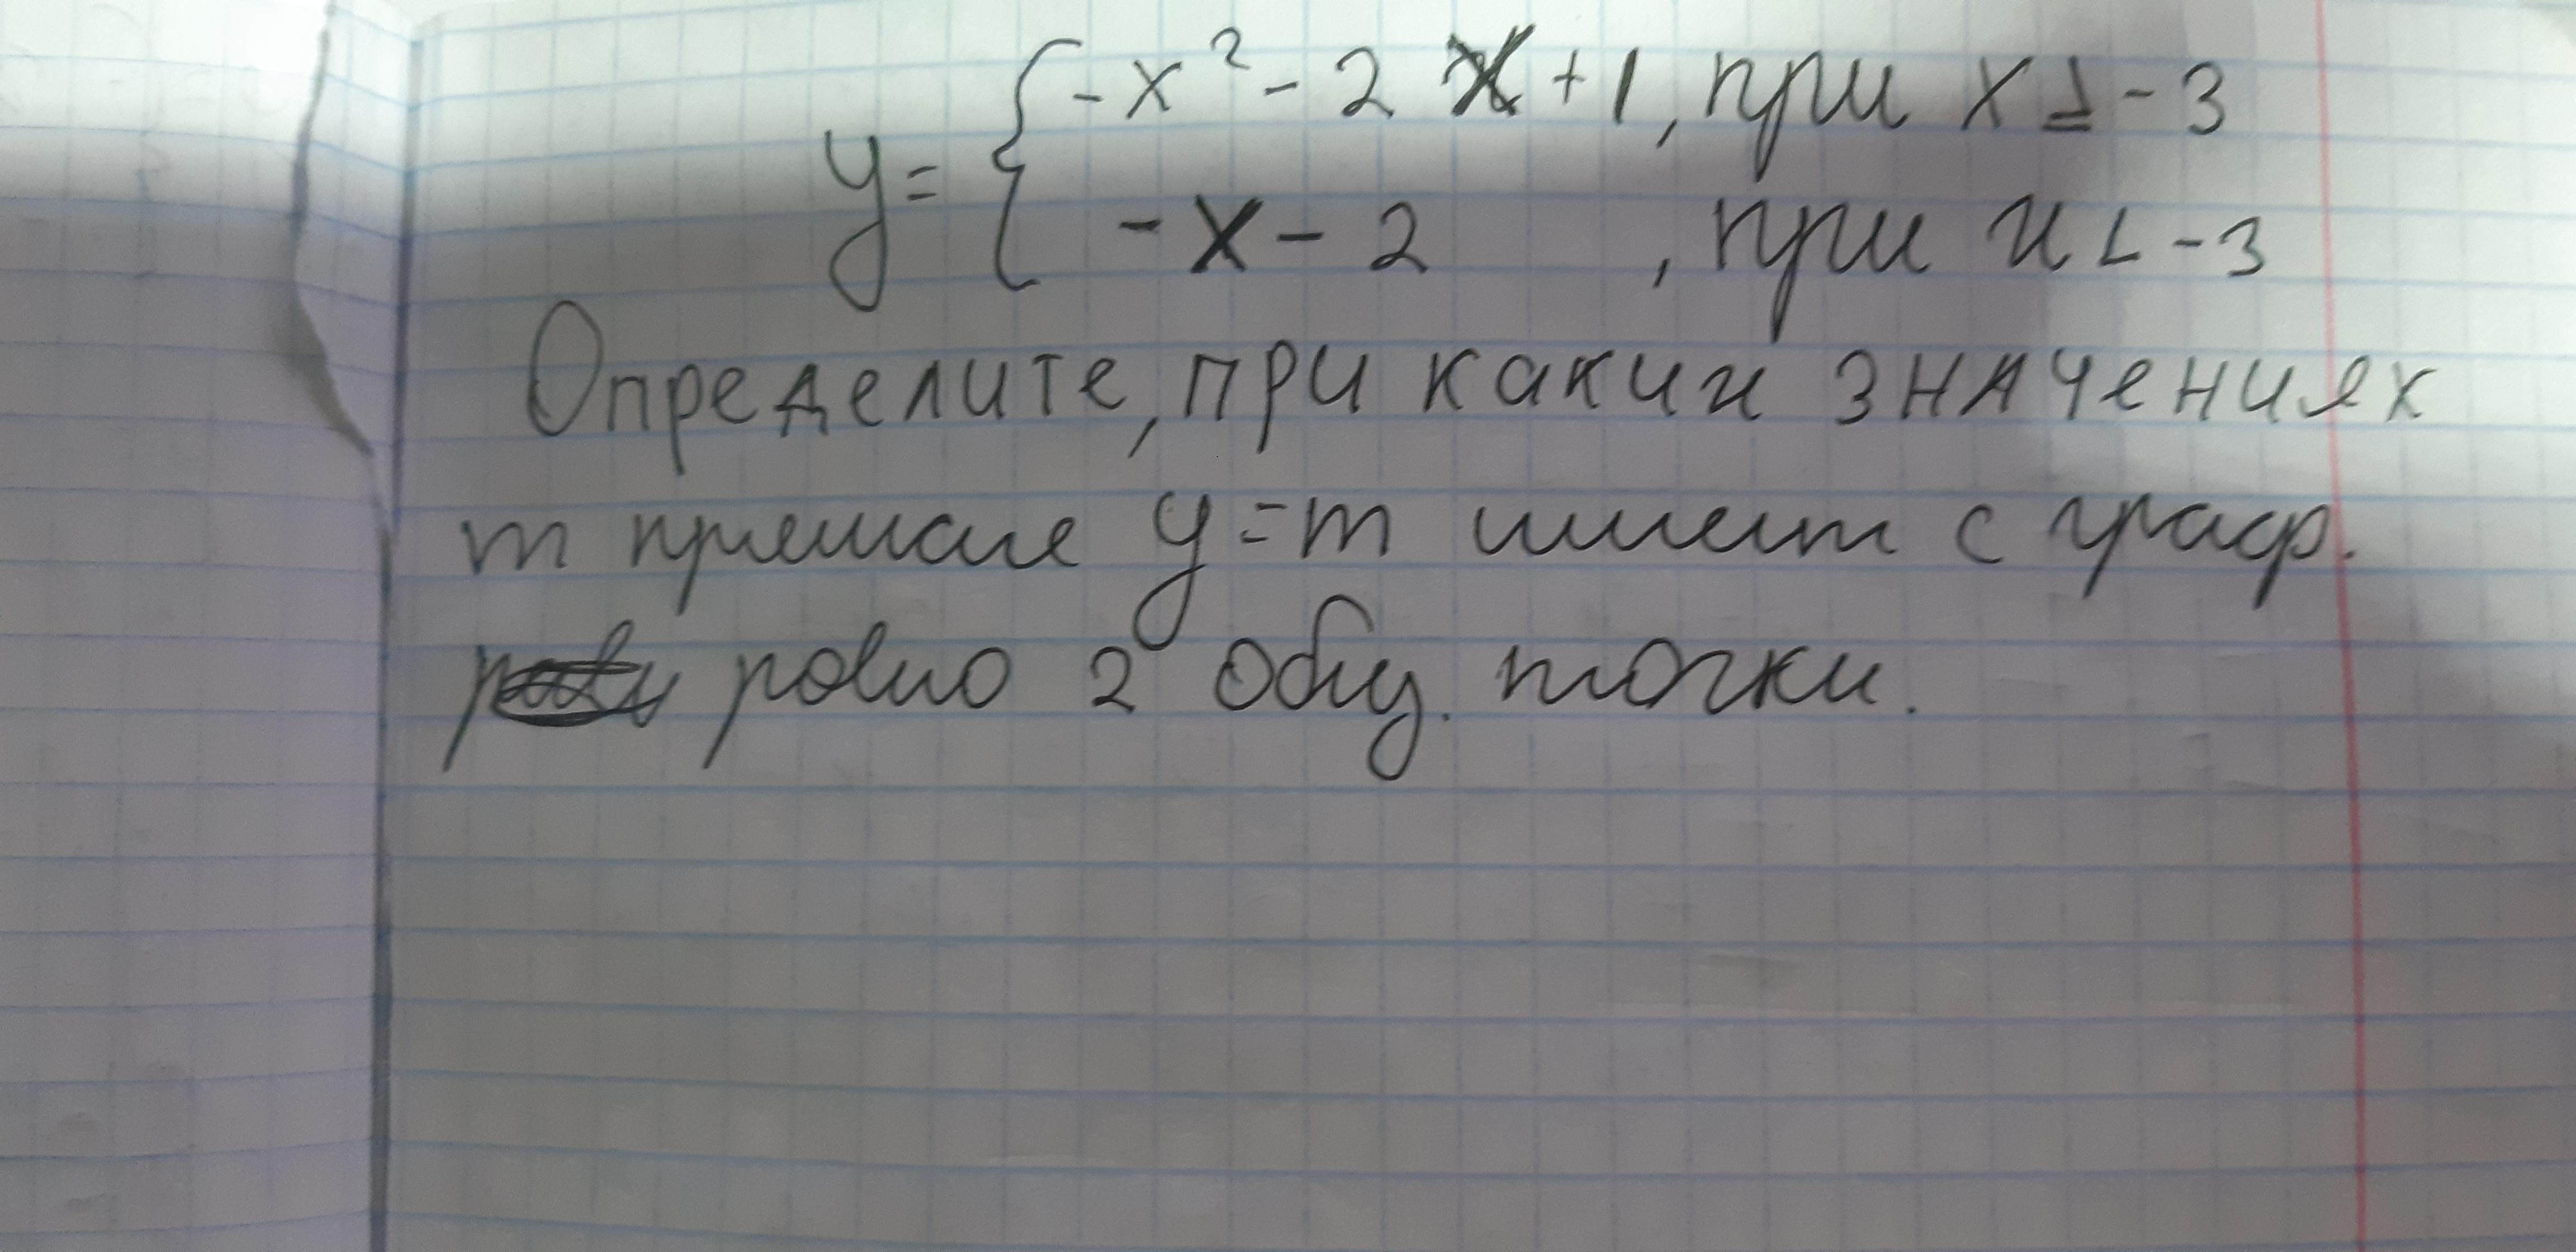 y = { -x² - 2x + 1, при x ≥ -3
-x - 2 , при x < -3
Определите, при каких значениях
m прямая y = m имеет с граф.
ровно 2 общ. точки.